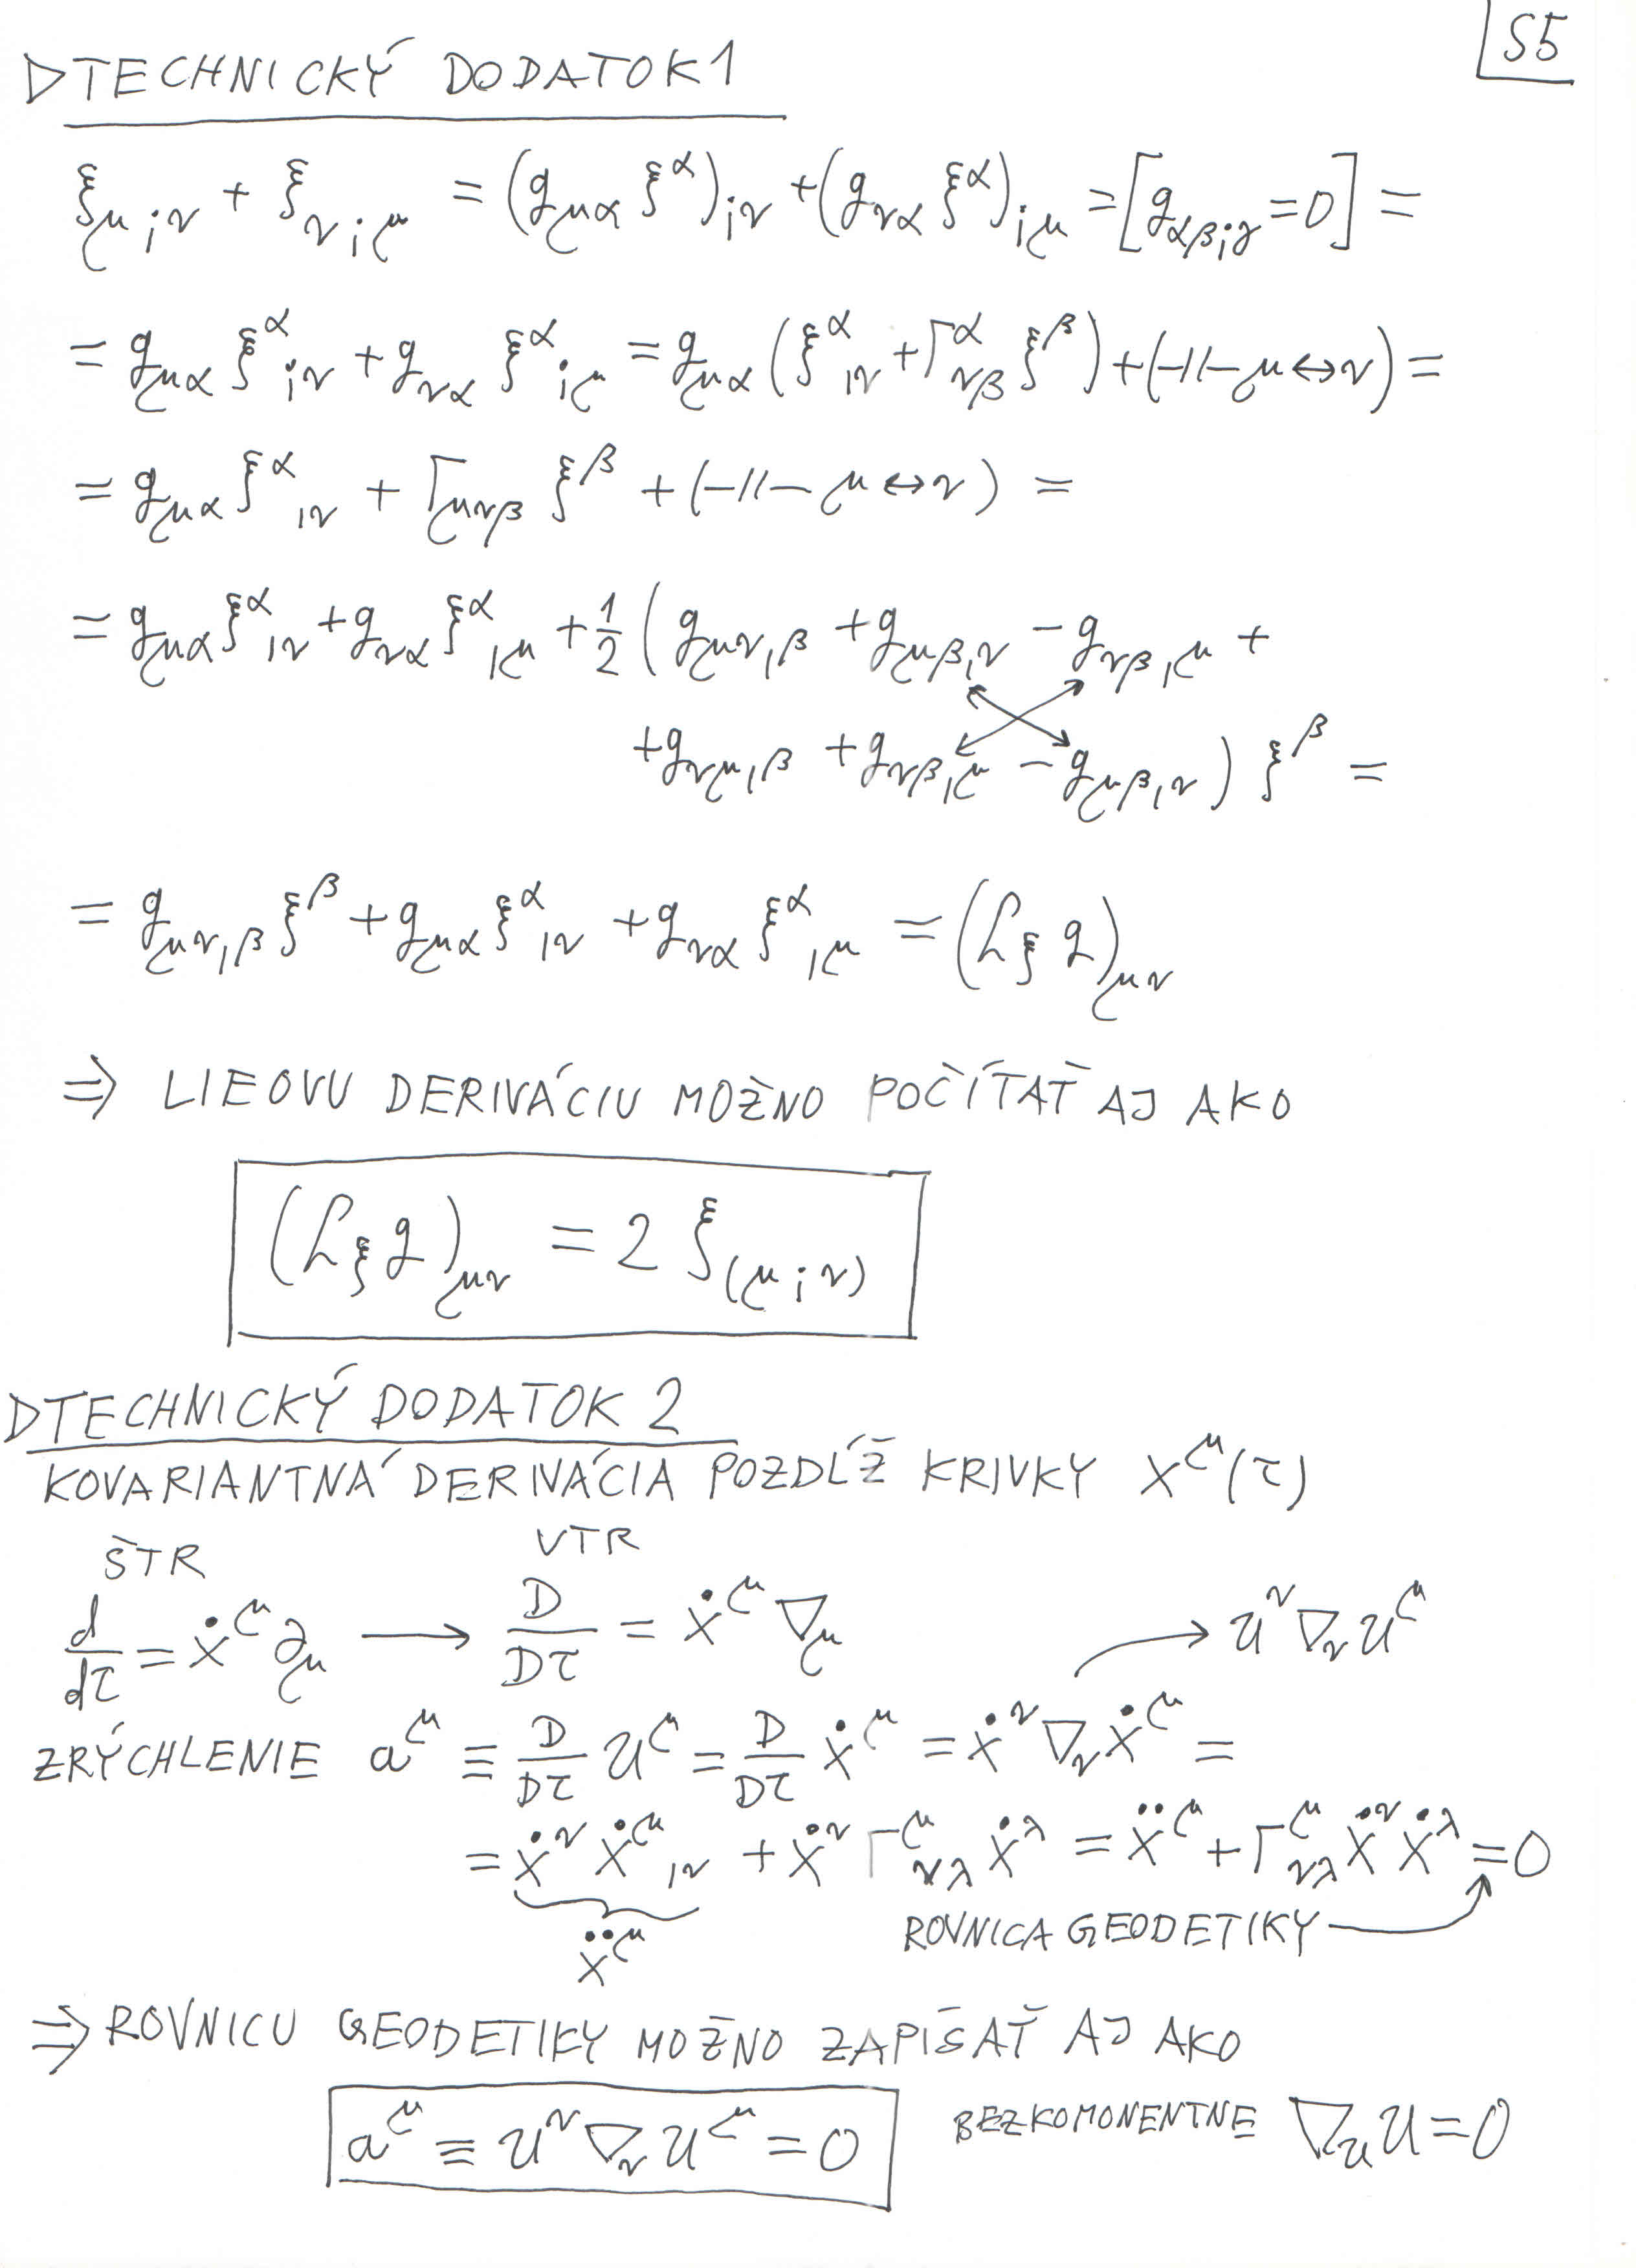 S5
▷ TECHNICKÝ DODATOK 1
ξ_{μ;ν} + ξ_{ν;μ} = (g_{μα} ξ^α)_{;ν} + (g_{να} ξ^α)_{;μ} = [g_{αβ;γ} = 0] =
= g_{μα} ξ^α_{;ν} + g_{να} ξ^α_{;μ} = g_{μα} (ξ^α_{,ν} + Γ^α_{νβ} ξ^β) + (-||- μ↔ν) =
= g_{μα} ξ^α_{,ν} + Γ_{μνβ} ξ^β + (-||- μ↔ν) =
= g_{μα} ξ^α_{,ν} + g_{να} ξ^α_{,μ} + 1/2 (g_{μν,β} + g_{μβ,ν} - g_{νβ,μ} +
+ g_{νμ,β} + g_{νβ,μ} - g_{μβ,ν}) ξ^β =
= g_{μν,β} ξ^β + g_{μα} ξ^α_{,ν} + g_{να} ξ^α_{,μ} = (ℒ_ξ g)_{μν}
⇒ LIEOVU DERIVÁCIU MOŽNO POČÍTAŤ AJ AKO
(ℒ_ξ g)_{μν} = 2 ξ_{(μ;ν)}
▷ TECHNICKÝ DODATOK 2
KOVARIANTNÁ DERIVÁCIA POZDĹŽ KRIVKY x^μ(τ)
ŠTR VTR
d/dτ = ẋ^μ ∂_μ → D/Dτ = ẋ^μ ∇_μ → u^ν ∇_ν u^μ
ZRÝCHLENIE a^μ ≡ D/Dτ u^μ = D/Dτ ẋ^μ = ẋ^ν ∇_ν ẋ^μ =
= ẋ^ν ẋ^μ_{,ν} + ẋ^ν Γ^μ_{νλ} ẋ^λ = ẍ^μ + Γ^μ_{νλ} ẋ^ν ẋ^λ = 0
ẍ^μ ROVNICA GEODETIKY
⇒ ROVNICU GEODETIKY MOŽNO ZAPÍSAŤ AJ AKO
a^μ ≡ u^ν ∇_ν u^μ = 0 BEZKOMONENTNE ∇_u u = 0